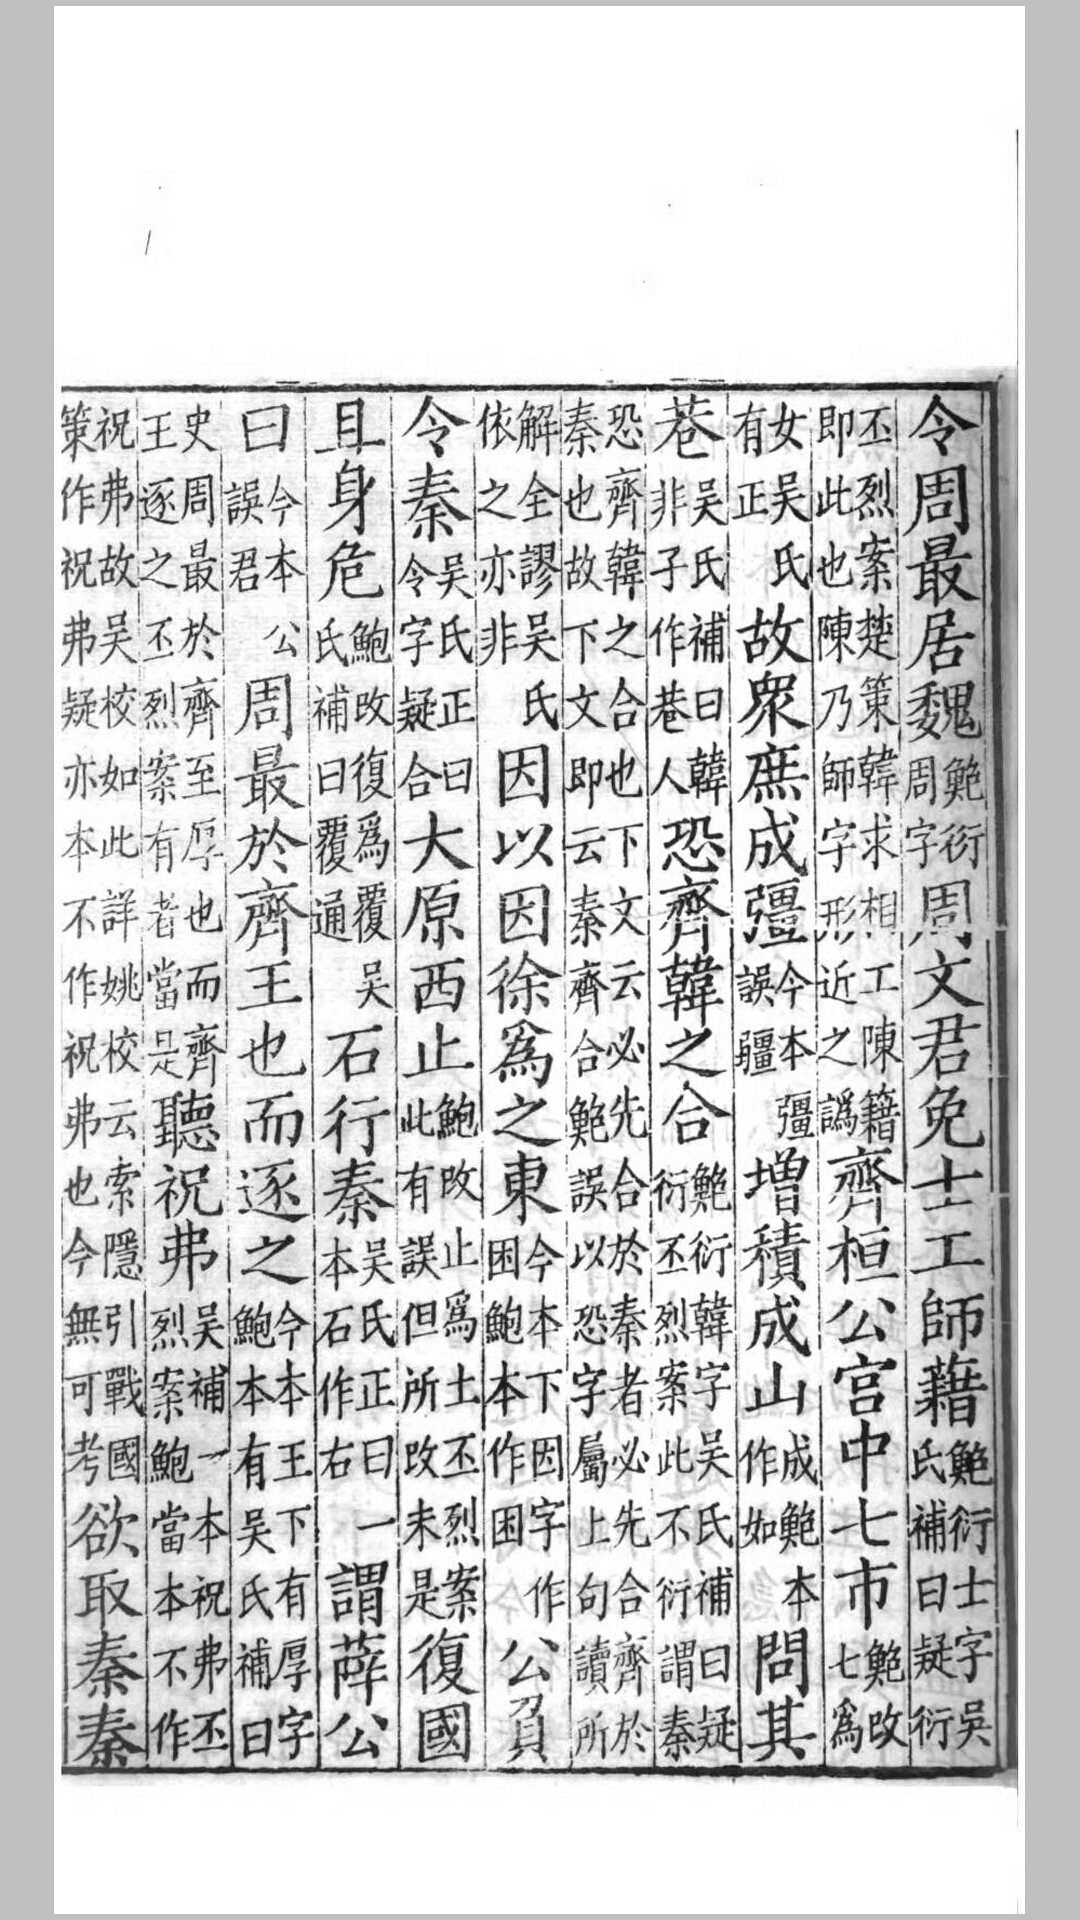 令周最居魏鮑衍周字周文君免士工師藉鮑衍士字吳氏補曰疑衍
丕烈案楚策韓求相工陳籍即此也陳乃師字形近之譌齊桓公宮中七市鮑改七爲
女吳氏有正故衆庶成彊今本彊誤疆增積成山成鮑本作如問其
巷吳氏補曰韓非子作巷人恐齊韓之合鮑衍韓字吳氏補曰疑衍丕烈案此不衍謂秦
恐齊韓之合也下文云必先合於秦者必先合齊於秦也故下文即云秦齊合鮑誤以恐字屬上句讀所
解全謬吳氏依之亦非因以因徐爲之東今本下因字作困鮑本作困公負
令秦吳氏正曰令字疑合大原西止鮑改止爲土丕烈案此有誤但所改未是復國
且身危鮑改復爲覆吳氏補曰覆通石行秦吳氏正曰一本石作右謂薛公
曰今本公誤君周最於齊王也而逐之今本王下有厚字鮑本有吳氏補曰
史周最於齊至厚也而齊王逐之丕烈案有者當是聽祝弗吳補一本祝弗丕烈案鮑當本不作
祝弗故吳校如此詳姚校云索隱引戰國策作祝弗疑亦本不作祝弗也今無可考欲取秦秦